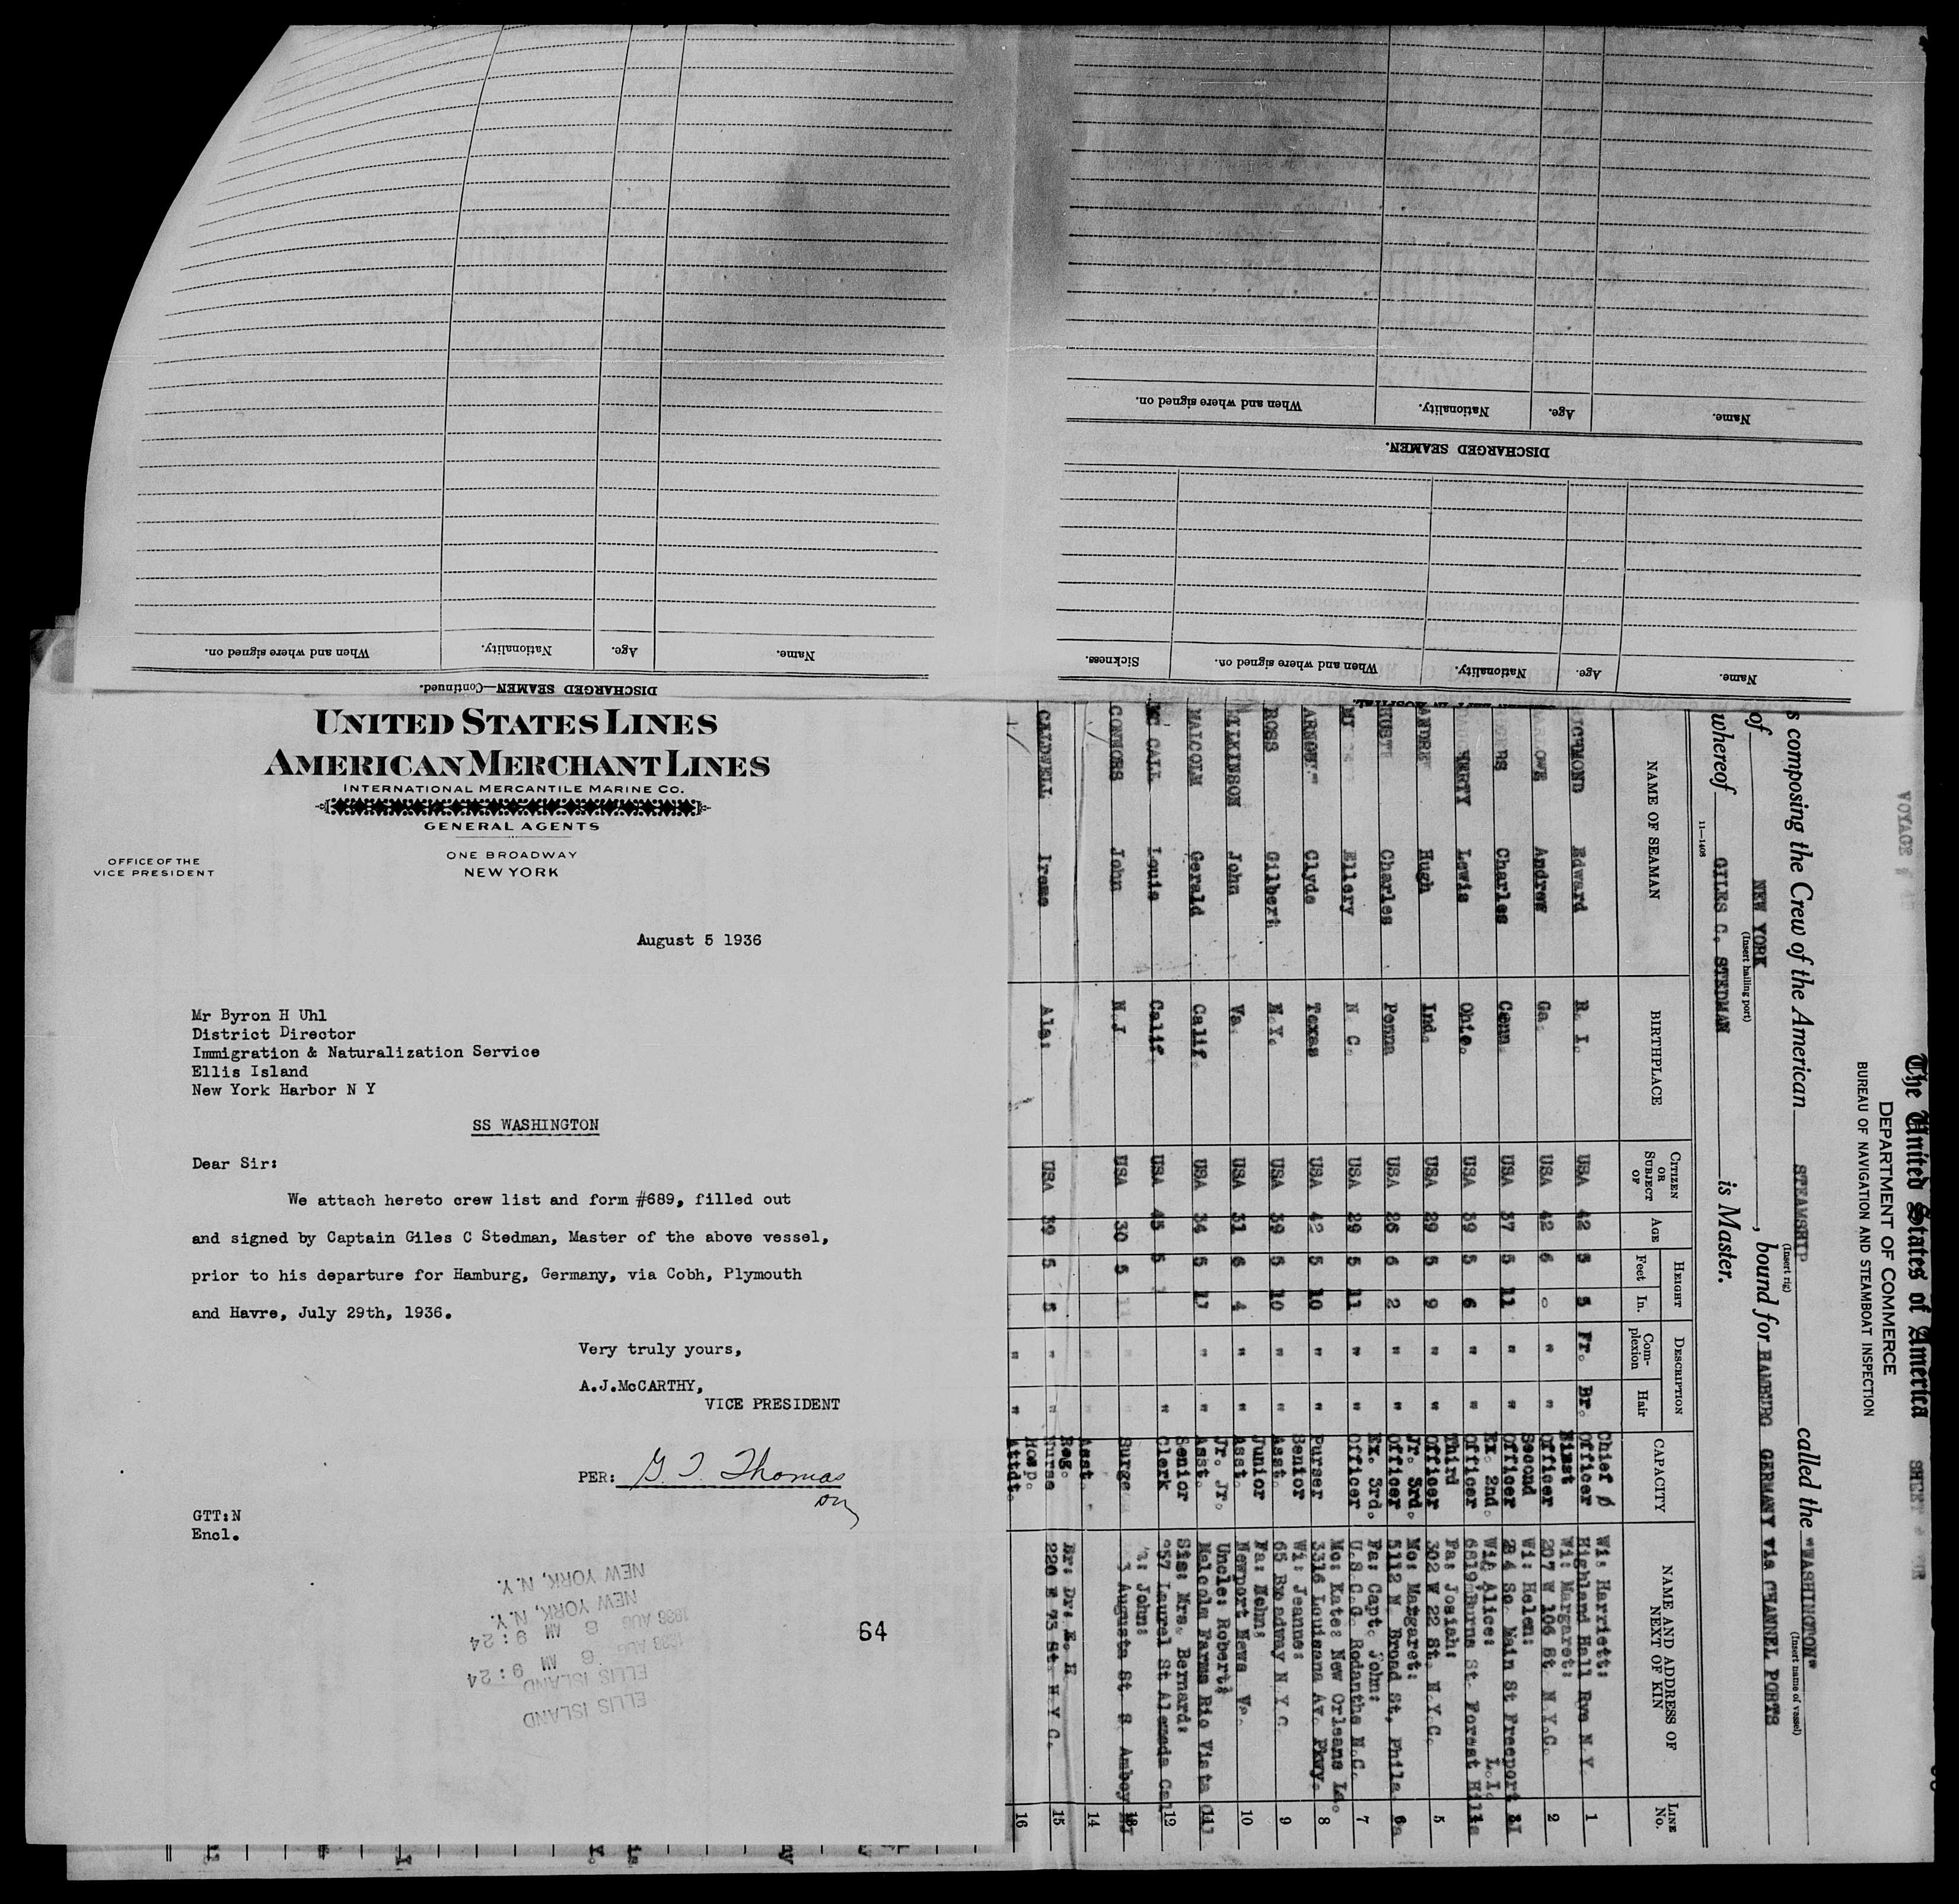 When and where signed on.
Nationality.
Age.
Name.
DISCHARGED SEAMEN—Continued.
When and where signed on.
Nationality.
Age.
Name.
DISCHARGED SEAMEN.
Sickness.
When and where signed on.
Nationality.
Age.
Name.
UNITED STATES LINES
AMERICAN MERCHANT LINES
INTERNATIONAL MERCANTILE MARINE CO.
GENERAL AGENTS
OFFICE OF THE
VICE PRESIDENT
ONE BROADWAY
NEW YORK
August 5 1936
Mr Byron H Uhl
District Director
Immigration & Naturalization Service
Ellis Island
New York Harbor N Y
SS WASHINGTON
Dear Sir:
We attach hereto crew list and form #689, filled out
and signed by Captain Giles C Stedman, Master of the above vessel,
prior to his departure for Hamburg, Germany, via Cobh, Plymouth
and Havre, July 29th, 1936.
Very truly yours,
A.J.McCARTHY,
VICE PRESIDENT
PER: G. T. Thomas
GTT:N
Encl.
64
NEW YORK, N.Y.
NEW YORK, N.Y.
1936 AUG 6 AM 9:24
1936 AUG 6 AM 9:24
ELLIS ISLAND
ELLIS ISLAND
VOYAGE
SHEET
The United States of America
DEPARTMENT OF COMMERCE
BUREAU OF NAVIGATION AND STEAMBOAT INSPECTION
composing the Crew of the American STEAMSHIP called the "WASHINGTON"
(Insert rig)
(Insert name of vessel)
of NEW YORK, bound for HAMBURG GERMANY via CHANNEL PORTS
(Insert hailing port)
whereof GILES C. STEDMAN is Master.
11—1408
NAME OF SEAMAN
BIRTHPLACE
CITIZEN OR SUBJECT OF
AGE
HEIGHT
Feet
In.
DESCRIPTION
Complexion
Hair
CAPACITY
NAME AND ADDRESS OF NEXT OF KIN
LINE No.
Edward R. I. USA 42 5 5 Fr. Br. Chief Officer Wi: Harriett: Highland Hall Rye N.Y. 1
Andrew Ga. USA 42 6 0 " " First Officer Wi: Margaret: 207 W 106 St. N.Y.C. 2
Charles Conn. USA 37 5 11 " " Second Officer Wi: Helen: So. Main St Freeport
Lewis Ohio. USA 39 5 6 " " Ex. 2nd. Officer Wi: Alice: 6819 Burns St. Forest Hills L.I.
Hugh Ind. USA 29 5 9 " " Third Officer Fa: Josiah: 302 W 22 St. N.Y.C. 5
Charles Penna USA 26 6 2 " " Jr. 3rd. Officer Mo: Margaret: 5112 N. Broad St, Phila. 6
Ellery N. C. USA 29 5 11 " " Ex. 3rd. Officer Fa: Capt. John: U.S.C.G. Rodanthe N.C. 7
Clyde Texas USA 42 5 10 " " Purser Mo: Kate: New Orleans La. 3316 Louisana Av. Pkwy. 8
ROSS Gilbert N.Y. USA 39 5 10 " " Senior Asst. Wi: Jeanne: 65 Broadway N.Y.C. 9
WILKINSON John Va. USA 31 6 4 " " Junior Asst. Fa: John: Newport News Va. 10
MALCOLM Gerald Calif. USA 34 5 11 " " Jr. Jr. Asst. Uncle: Robert: Malcolm Farms Rio Vista 11
Mc CALL Louis Calif. USA 45 5 " Senior Clerk Sis: Mrs. Bernard: 957 Laurel St Alameda Cal 12
CONNORS John N.J USA 30 5 11 John: Augusta St. S. Amboy NJ
Asst. 14
CALDWELL Irene Ala: USA 39 5 5 " " Reg. Nurse Br: Dr. E. H 220 E 73 St. N.Y.C. 15
" " Hosp. Attdt. 16